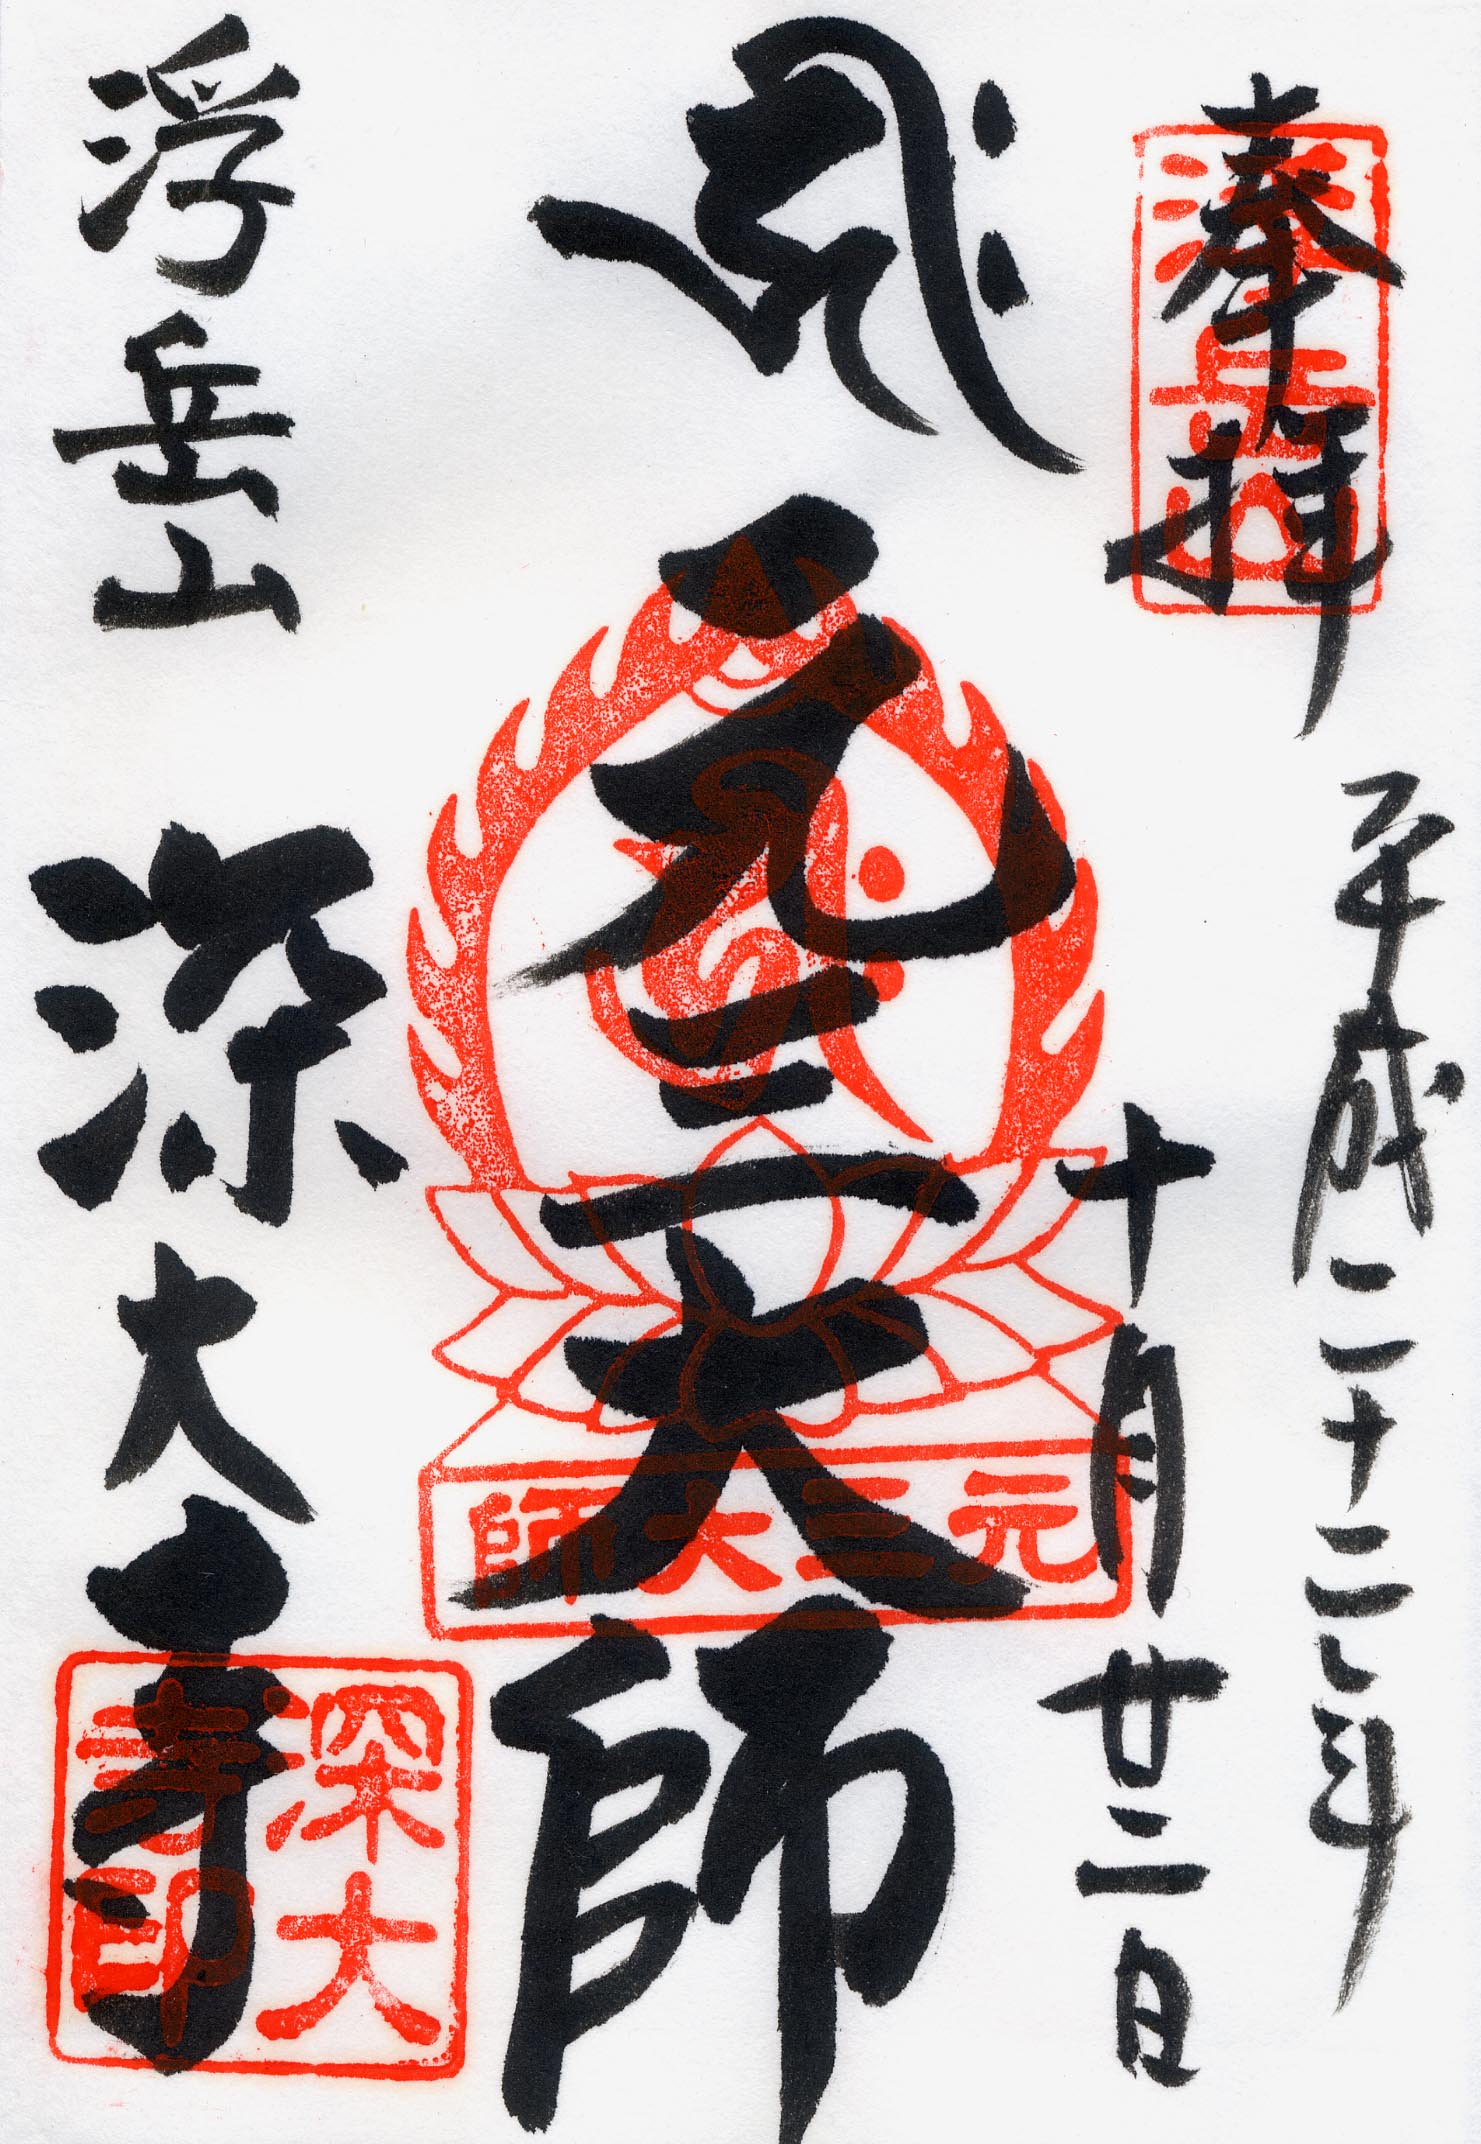 奉拝
浮岳山
平成二十二年
十月廿二日
元三大師
元三大師
浮岳山
深大寺
深大寺印